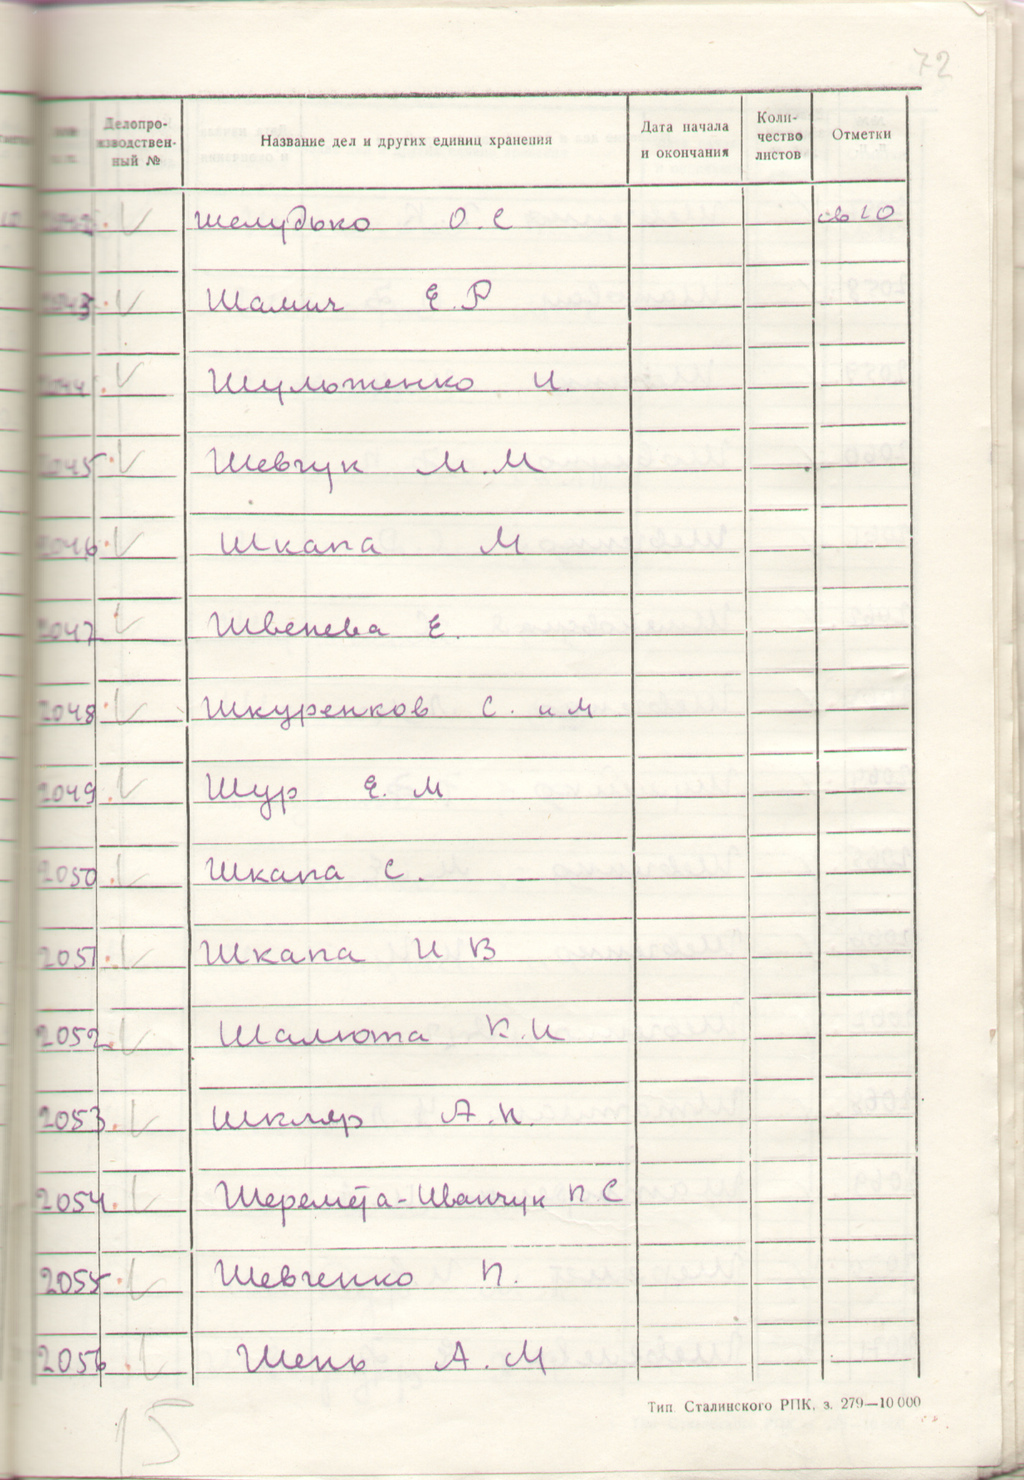 72
Делопро-
изводствен-
ный №
Название дел и других единиц хранения
Дата начала
и окончания
Коли-
чество
листов
Отметки
2042. Шелудько О. С св 10
2043. Шамич Е. Р
2044. Шульженко И.
2045. Шевчук М. М
2046. Шкапа М
2047 Швенева Е.
2048. Шкуренков С. и М
2049. Шур Е. М
2050. Шкапа С.
2051. Шкапа И В
2052. Шалюта К. И
2053. Шкляр А. П.
2054. Шеремета-Иванчук П С
2055. Шевченко П.
2056. Шень А. М
15
Тип. Сталинского РПК, з. 279—10 000